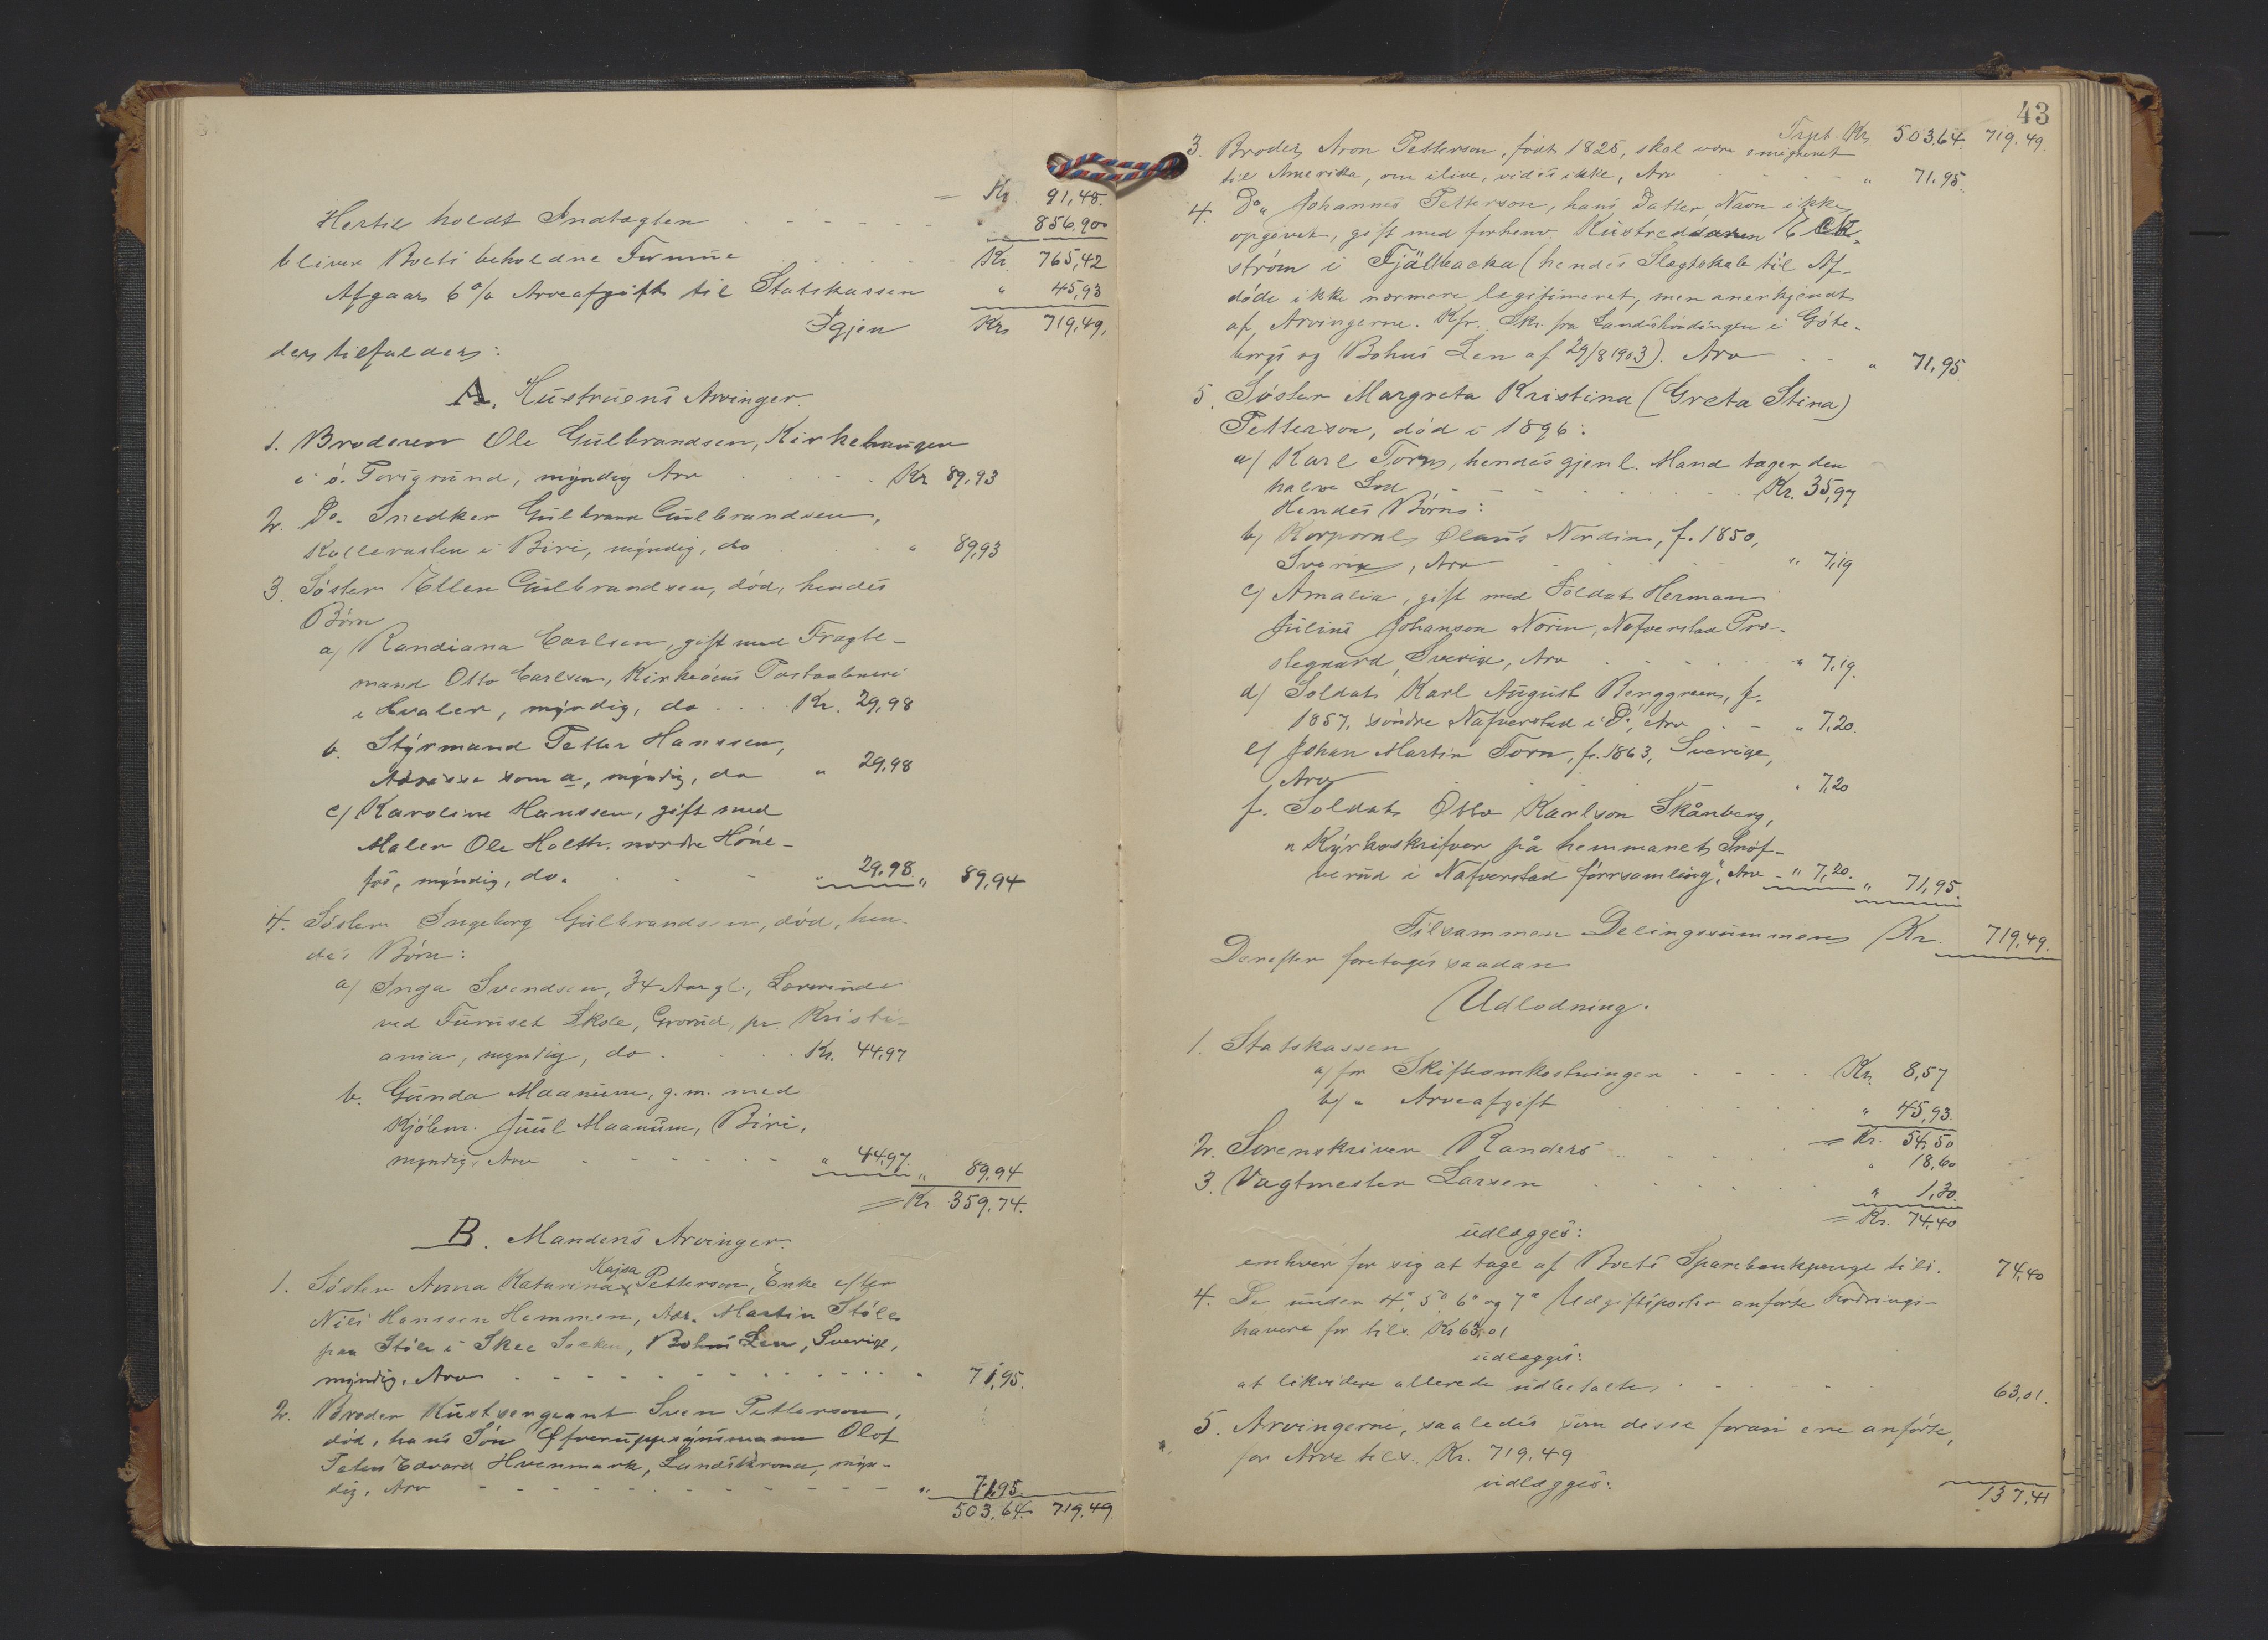 = Kr. 91,48.
Hertil holdt Indtægten - - - - - " 856,90
bliver Boets beholdne Formue - - - - - Kr 765,42
Afgaar 6% Arveafgift til Statskassen " 45,93
Igjen Kr 719,49.
der tilfalder:
A. Hustruens Arvinger.
1. Broderen Ole Gulbrandsen, Kirkehaugen
i ö. Torigrund, myndig Arv - - - - Kr 89,93
2. Do. Snedker Gulbrand Gulbrandsen,
i Biri, myndig, do - - - " 89,93
3. Söster Ellen Gulbrandsen, död, hendes
Börn
a) Randiana Carlsen, gift med Fragte-
mand Otto Carlsen, Kirkeöens Postaabneri
i Hvaler, myndig, do . . . . Kr. 29,98
b. Styrmand Petter Hanssen,
Adresse som a, myndig, do " 29,98
c) Karoline Hanssen, gift med
Maler Ole Holth. nordre Höne-
fos, myndig, do. - - - " 29,98. " 89,94
4. Söster Ingeborg Gulbrandsen, död, hen-
des Börn:
a) Inga Svendsen, 34 Aar gl., Lærerinde
ved Furuset Skole, Grorud pr. Kristi-
ania, myndig, do . . . . Kr. 44,97
b. Gunda Maanum, g. m. med
Kjölem. Juul Maanum, Biri,
myndig, Arv - - - - - - " 44,97 " 89,94
= Kr. 359,74.
B. Mandens Arvinger.
Kajsa
1. Söster Anna Katarina x Petterson, Enke efter
Nils Hanssen Hemmen, Adr. Martin Stöle
paa Stöle i Skee Socken, Bohus Len, Sverige,
myndig. Arv - - - - - - - - - - " 71,95.
2. Broder Kustsergeant Sven Petterson,
död, hans Sön Öfveruppsynsmann Olof
Peter Edvard Hvenmark, Landskrona, myn-
dig. Arv - - - - - - - - - - " 71,95
503,64 719,49
43
Trspt. Kr. 503,64. 719,49.
3. Broder Aron Petterson, födt 1825, skal være emigreret
til Amerika, om ilive, vides ikke, Arv - - - - " 71,95.
4. Do. Johannes Petterson, hans Datter, Navn ikke
opgivet, gift med forhenv. Kustroddaren E. Ek-
ström i Fjällbacka (hendes Slægtskab til Af-
döde ikke nærmere legitimeret, men anerkjendt
af Arvingerne. Kfr. Skr. fra Landshövdingen i Göte-
borgs og Bohus Len af 29/8 1903). Arv - - " 71,95
5. Söster Margreta Kristina (Greta Stina)
Petterson, död i 1896:
a) Karl Torn, hendes gjenl. Mand tager den
halve Lod - - - - - - - - Kr. 35,97
Hendes Börn:
b) Korporal Olaus Nordin, f. 1850,
Sverige, Arv - - - - - - " 7,19
c) Amalia, gift med Soldat Herman
Julius Johanson Norin, Nafverstad Pre-
stegaard, Sverige, Arv - - - - - " 7,19.
d) Soldat Karl August Berggreen, f.
1857, söndre Nafverstad i Do, Arv - - " 7,20.
e) Johan Martin Torn, f. 1863, Sverige,
Arv - - - - - - " 7,20
f. Soldat Otto Karlson Skånberg,
"Kyrkoskrifver på hemmanet Snöf-
verud i Nafverstad församling", Arv - " 7,20. " 71,95
Tilsammen Delingssummen Kr. 719,49.
Derefter foretages saadan
Udlodning.
1. Statskassen
a) for Skifteomkostninger - - - - Kr. 8,57
b) " Arveafgift - - - - - - " 45,93.
= Kr. 54,50
2. Sorenskriver Randers - - - - - " 18,60
3. Vagtmester Larsen - - - - - - " 1,30.
= Kr. 74,40
udlægges:
enhver for sig at tage af Boets Sparebankpenge tils. 74,40
4. De under 4o, 5o, 6o og 7o Udgiftsposter anförte Fordrings-
havere for tils. Kr 63,01
udlægges:
at likvidere allerede udbetalte - - - - - 63,01.
5. Arvingerne, saaledes som disse foran ere anförte,
for Arve tils. Kr. 719.49
udlægges:
137,41